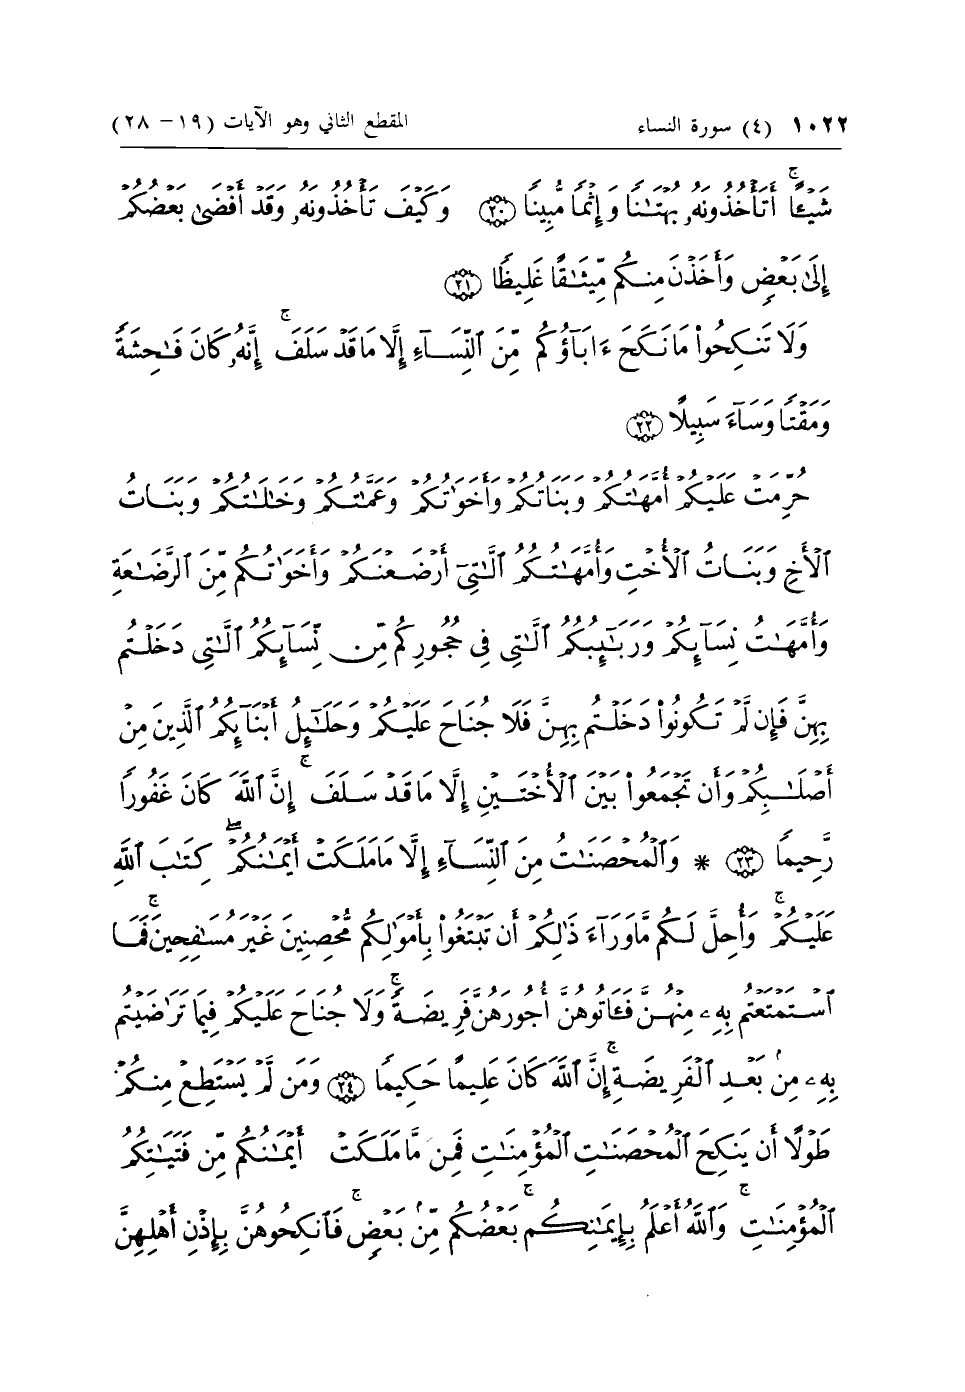 ١٠٢٢ (٤) سورة النساء المقطع الثاني وهو الآيات (١٩ - ٢٨)
شَيْـًٔا ۚ أَتَأْخُذُونَهُۥ بُهْتَـٰنًا وَإِثْمًا مُّبِينًا ﴿٢٠﴾ وَكَيْفَ تَأْخُذُونَهُۥ وَقَدْ أَفْضَىٰ بَعْضُكُمْ
إِلَىٰ بَعْضٍ وَأَخَذْنَ مِنكُم مِّيثَـٰقًا غَلِيظًا ﴿٢١﴾
وَلَا تَنكِحُوا۟ مَا نَكَحَ ءَابَآؤُكُم مِّنَ ٱلنِّسَآءِ إِلَّا مَا قَدْ سَلَفَ ۚ إِنَّهُۥ كَانَ فَـٰحِشَةً
وَمَقْتًا وَسَآءَ سَبِيلًا ﴿٢٢﴾
حُرِّمَتْ عَلَيْكُمْ أُمَّهَـٰتُكُمْ وَبَنَاتُكُمْ وَأَخَوَٰتُكُمْ وَعَمَّـٰتُكُمْ وَخَـٰلَـٰتُكُمْ وَبَنَاتُ
ٱلْأَخِ وَبَنَاتُ ٱلْأُخْتِ وَأُمَّهَـٰتُكُمُ ٱلَّـٰتِىٓ أَرْضَعْنَكُمْ وَأَخَوَٰتُكُم مِّنَ ٱلرَّضَـٰعَةِ
وَأُمَّهَـٰتُ نِسَآئِكُمْ وَرَبَـٰٓئِبُكُمُ ٱلَّـٰتِى فِى حُجُورِكُم مِّن نِّسَآئِكُمُ ٱلَّـٰتِى دَخَلْتُم
بِهِنَّ فَإِن لَّمْ تَكُونُوا۟ دَخَلْتُم بِهِنَّ فَلَا جُنَاحَ عَلَيْكُمْ وَحَلَـٰٓئِلُ أَبْنَآئِكُمُ ٱلَّذِينَ مِنْ
أَصْلَـٰبِكُمْ وَأَن تَجْمَعُوا۟ بَيْنَ ٱلْأُخْتَيْنِ إِلَّا مَا قَدْ سَلَفَ ۚ إِنَّ ٱللَّهَ كَانَ غَفُورًا
رَّحِيمًا ﴿٢٣﴾ * وَٱلْمُحْصَنَـٰتُ مِنَ ٱلنِّسَآءِ إِلَّا مَا مَلَكَتْ أَيْمَـٰنُكُمْ ۖ كِتَـٰبَ ٱللَّهِ
عَلَيْكُمْ ۚ وَأُحِلَّ لَكُم مَّا وَرَآءَ ذَٰلِكُمْ أَن تَبْتَغُوا۟ بِأَمْوَٰلِكُم مُّحْصِنِينَ غَيْرَ مُسَـٰفِحِينَ ۚ فَمَا
ٱسْتَمْتَعْتُم بِهِۦ مِنْهُنَّ فَـَٔاتُوهُنَّ أُجُورَهُنَّ فَرِيضَةً ۚ وَلَا جُنَاحَ عَلَيْكُمْ فِيمَا تَرَٰضَيْتُم
بِهِۦ مِنۢ بَعْدِ ٱلْفَرِيضَةِ ۚ إِنَّ ٱللَّهَ كَانَ عَلِيمًا حَكِيمًا ﴿٢٤﴾ وَمَن لَّمْ يَسْتَطِعْ مِنكُمْ
طَوْلًا أَن يَنكِحَ ٱلْمُحْصَنَـٰتِ ٱلْمُؤْمِنَـٰتِ فَمِن مَّا مَلَكَتْ أَيْمَـٰنُكُم مِّن فَتَيَـٰتِكُمُ
ٱلْمُؤْمِنَـٰتِ ۚ وَٱللَّهُ أَعْلَمُ بِإِيمَـٰنِكُم ۚ بَعْضُكُم مِّنۢ بَعْضٍ ۚ فَٱنكِحُوهُنَّ بِإِذْنِ أَهْلِهِنَّ